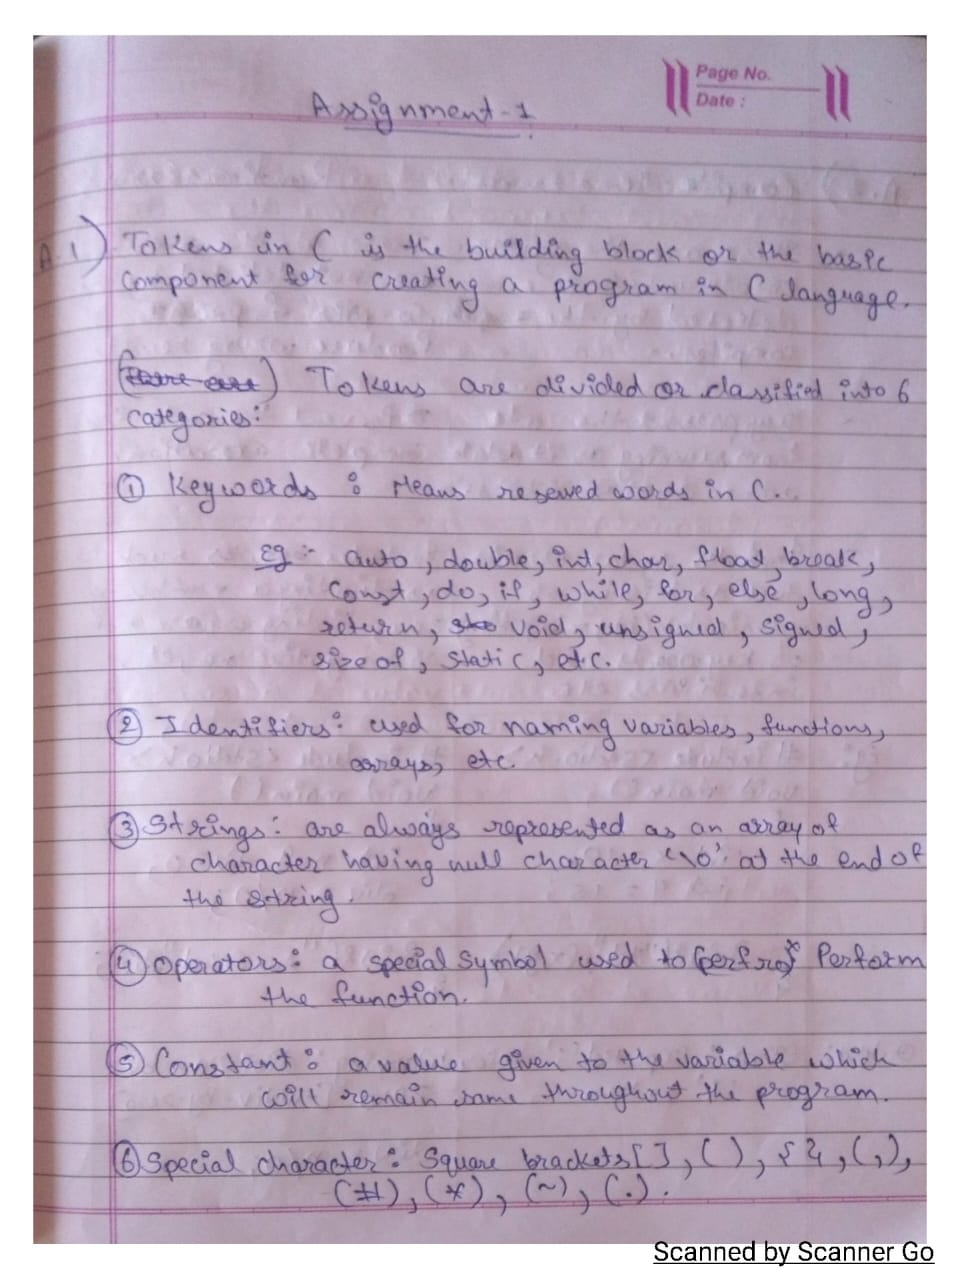 Page No.
Date :
Assignment-1
A.1) Tokens in C is the building block or the basic
component for creating a program in C language.
(There are) Tokens are divided or classified into 6
categories:
① Keywords : Means reserved words in C.
Eg :- auto, double, int, char, float, break,
const, do, if, while, for, else, long,
return, void, unsigned, signed,
sizeof, static, etc.
② Identifiers: used for naming variables, functions,
arrays, etc.
③ Strings: are always represented as an array of
character having null character '\0' at the end of
the string.
④ Operators: a special symbol used to (perfro) Perform
the function.
⑤ Constant: a value given to the variable which
will remain same throughout the program.
⑥ Special character: Square brackets [ ], ( ), { }, (,),
(#), (*), (~), (.).
Scanned by Scanner Go